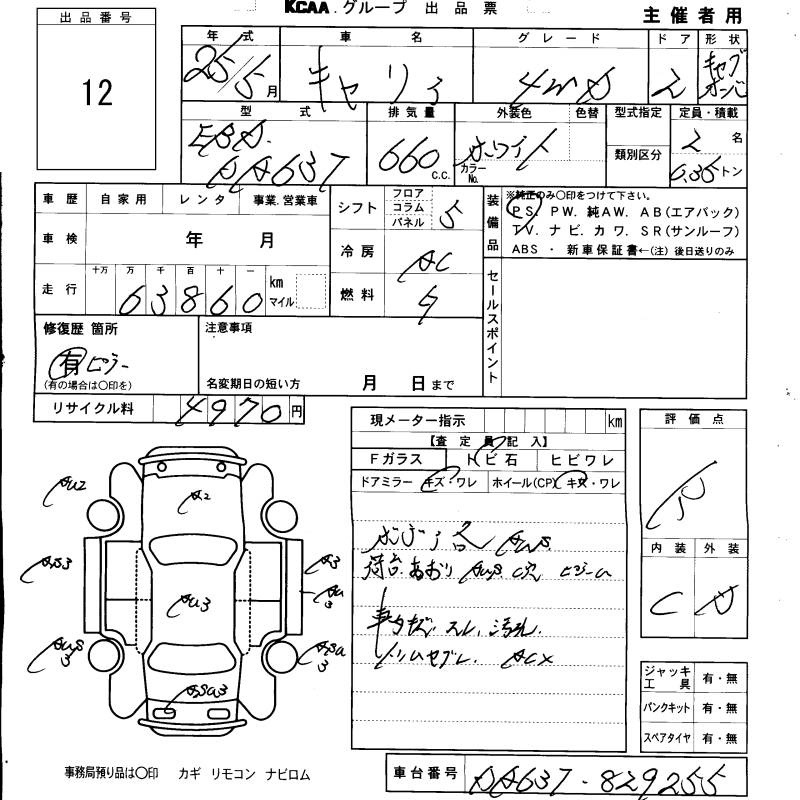 KCAA. グループ 出品票
主催者用
出品番号
12
年式 車名 グレード ドア 形状
25/5月 キャリイ 4WD 2 キャブオーバ
型式 排気量 外装色 色替 型式指定 定員・積載
EBD.
DA63T 660 C.C. ホワイト カラーNo. 類別区分 2 名
0.35 トン
車歴 自家用 レンタ 事業.営業車
車検 年 月
十万 万 千 百 十 一
走行 63860 km マイル
シフト フロア コラム パネル 5
冷房 AC
燃料 ガ
装備品
※純正のみ〇印をつけて下さい。
PS. PW. 純AW. AB(エアバック)
TV. ナビ. カワ. SR(サンルーフ)
ABS ・ 新車保証書←(注) 後日送りのみ
セールスポイント
修復歴 箇所
有 ピラー
(有の場合は〇印を)
注意事項
名変期日の短い方 月 日まで
リサイクル料 4970円
現メーター指示 km
【査定員記入】
Fガラス トビ石 ヒビワレ
ドアミラー キズ・ワレ ホイール(CP) キズ・ワレ
荷台.あおり
スレ、汚れ.
ACX
評価点
R
内装 外装
C D
ジャッキ工具 有・無
パンクキット 有・無
スペアタイヤ 有・無
AU2
A2
AS3
A3
AU3
AU3
事務局預り品は〇印 カギ リモコン ナビロム
車台番号 DA63T-829255